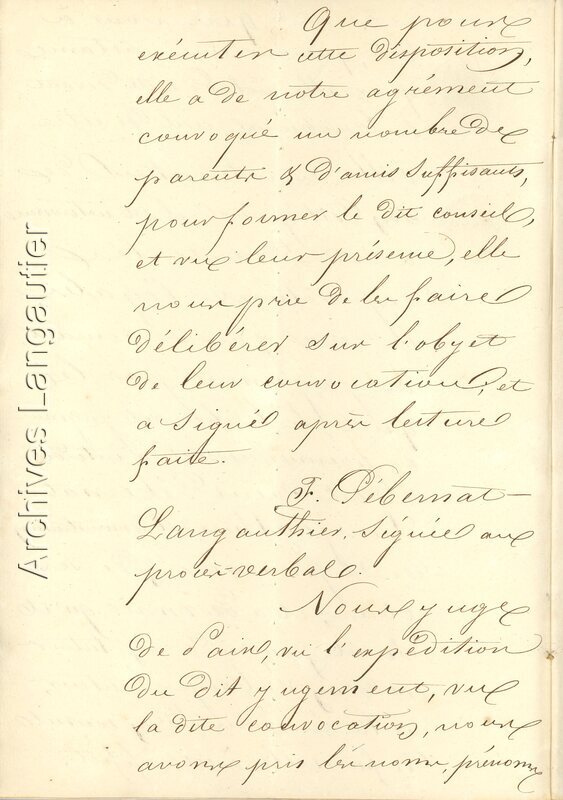 Que pour
exécuter cette disposition,
elle a de notre agrément
convoqué un nombre de
parents & d'amis suffisants,
pour former le dit conseil,
et vu leur présence, elle
nous prie de les faire
délibérer sur l'objet
de leur convocation, et
a signé après lecture
faite.
F. Pébernat-
Langauthier, signée au
procès-verbal.
Nous juge
de Paix, vu l'expédition
du dit jugement, vu
la dite convocation, nous
avons pris les noms, prénoms
Archives Langautier